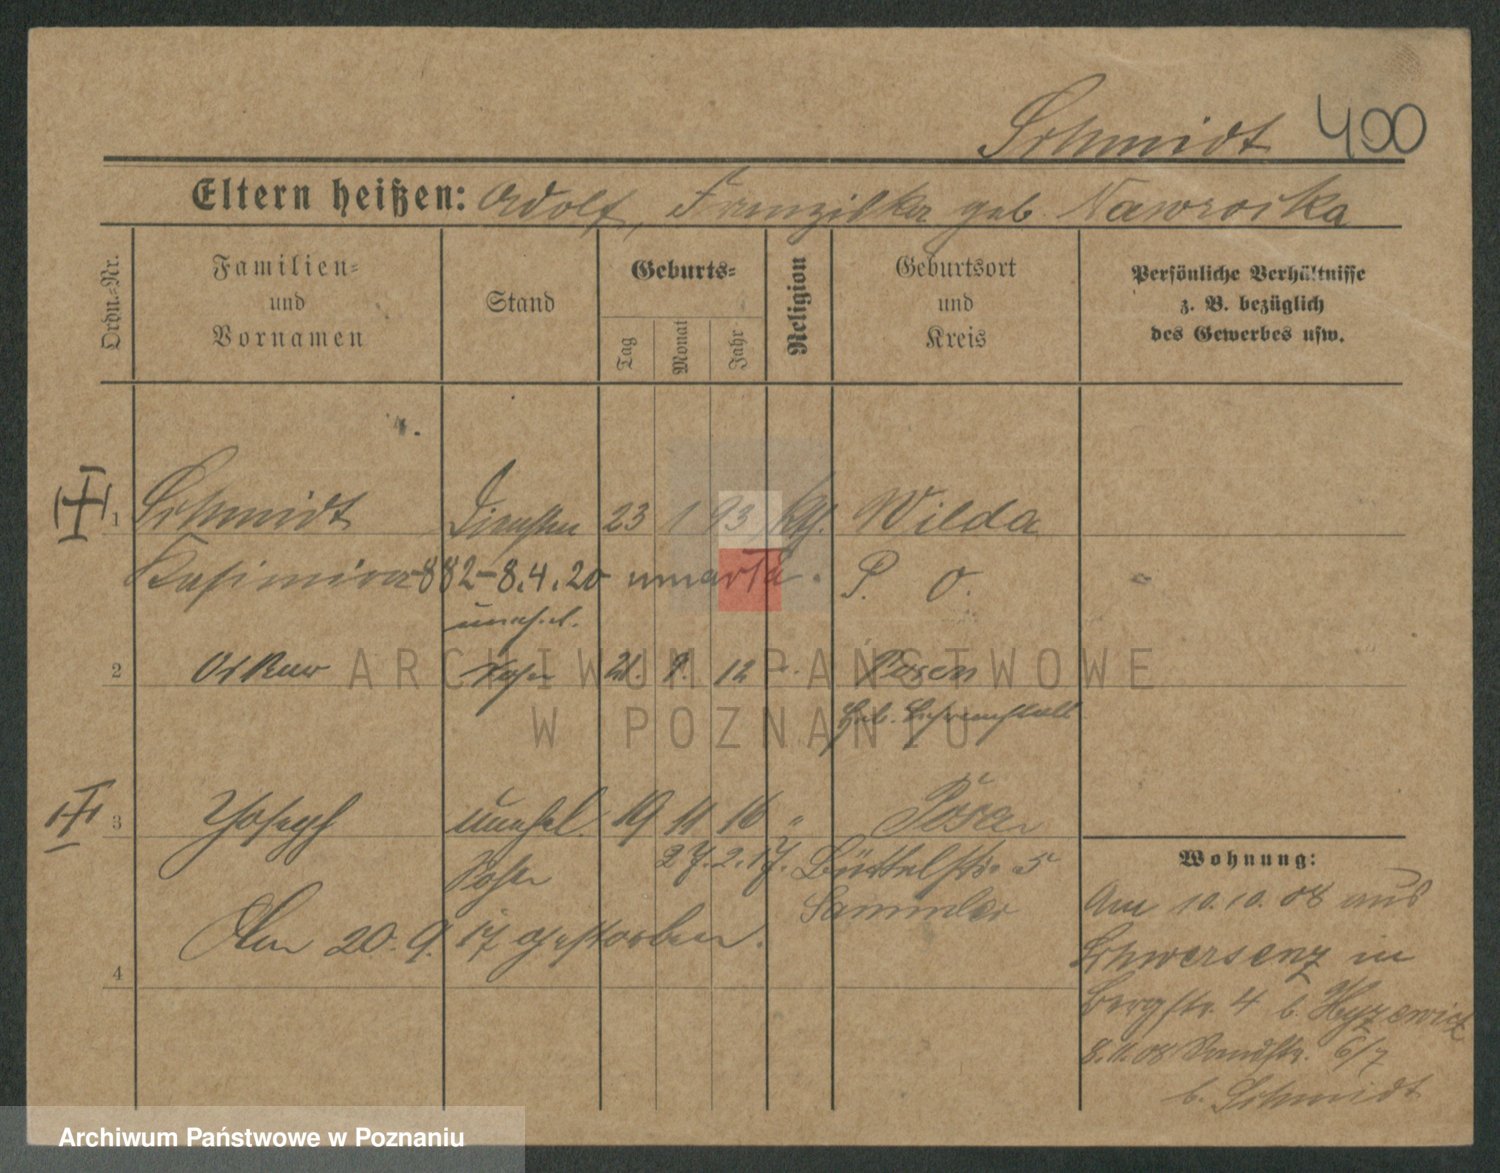 Schmidt 400
Eltern heißen: Adolf, Franziska geb. Nawrocka
Ordn.-Nr.
Familien-
und
Vornamen
Stand
Geburts-
Tag
Monat
Jahr
Religion
Geburtsort
und
Kreis
Persönliche Verhältnisse
z. B. bezüglich
des Gewerbes usw.
1 Schmidt 23 1 93 Wilda
Kasimira - 882 - 8.4.20 umarła. P. O.
unehel.
2 Sohn 21. 9. 12 Posen
3 Joseph unehel. 19 11 16 " Posen
Sohn 27. 2. 17. Büttelstr. 5
Sammler
Am 20. 9. 17 gestorben.
4
Wohnung:
Am 10.10.08 aus
Schwersenz in
Bergstr. 4 b.
8.11.08 6/7
b. Schmidt
ARCHIWUM PAŃSTWOWE
W POZNANIU
Archiwum Państwowe w Poznaniu